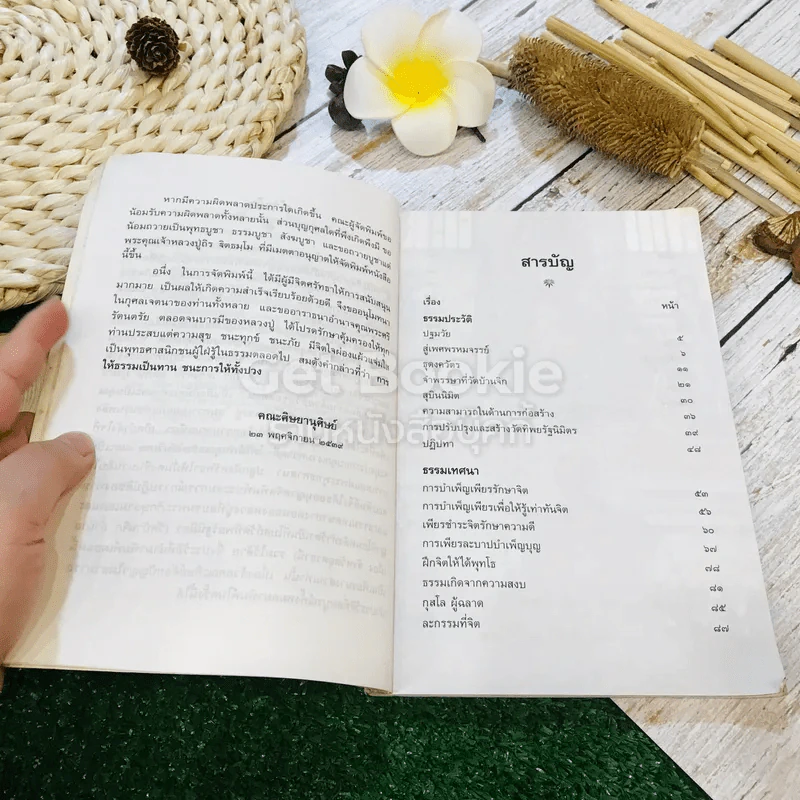 หากมีความผิดพลาดประการใดเกิดขึ้น คณะผู้จัดพิมพ์ขอ
น้อมรับความผิดพลาดทั้งหลายนั้น ส่วนบุญกุศลใดที่พึงเกิดพึงมี ขอ
น้อมถวายเป็นพุทธบูชา ธรรมบูชา สังฆบูชา และขอถวายบูชาแด่
พระคุณเจ้าหลวงปู่ถิร ฐิตธมฺโม ที่มีเมตตาอนุญาตให้จัดพิมพ์หนังสือ
นี้ขึ้น
อนึ่ง ในการจัดพิมพ์นี้ ได้มีผู้มีจิตศรัทธาให้การสนับสนุน
มากมาย เป็นผลให้เกิดความสำเร็จเรียบร้อยด้วยดี จึงขออนุโมทนา
ในกุศลเจตนาของท่านทั้งหลาย และขออาราธนาอำนาจคุณพระศรี
รัตนตรัย ตลอดจนบารมีของหลวงปู่ ได้โปรดรักษาคุ้มครองให้ทุก
ท่านประสบแต่ความสุข ชนะทุกข์ ชนะภัย มีจิตใจผ่องแผ้วแจ่มใส
เป็นพุทธศาสนิกชนผู้ใฝ่รู้ในธรรมตลอดไป สมดังคำกล่าวที่ว่า การ
ให้ธรรมเป็นทาน ชนะการให้ทั้งปวง
คณะศิษยานุศิษย์
๒๓ พฤศจิกายน ๒๕๓๙
สารบัญ
เรื่อง หน้า
ธรรมประวัติ
ปฐมวัย ๕
สู่เพศพรหมจรรย์ ๖
ธุดงควัตร ๑๑
จำพรรษาที่วัดบ้านจิก ๒๑
สุบินนิมิต ๓๐
ความสามารถในด้านการก่อสร้าง ๓๖
การปรับปรุงและสร้างวัดทิพยรัฐนิมิตร ๓๙
ปฏิปทา ๔๘
ธรรมเทศนา
การบำเพ็ญเพียรรักษาจิต ๕๓
การบำเพ็ญเพียรเพื่อให้รู้เท่าทันจิต ๕๖
เพียรชำระจิตรักษาความดี ๖๐
การเพียรละบาปบำเพ็ญบุญ ๖๗
ฝึกจิตให้ได้พุทโธ ๗๘
ธรรมเกิดจากความสงบ ๘๑
กุสโล ผู้ฉลาด ๘๕
ละกรรมที่จิต ๘๗
Get Bookie